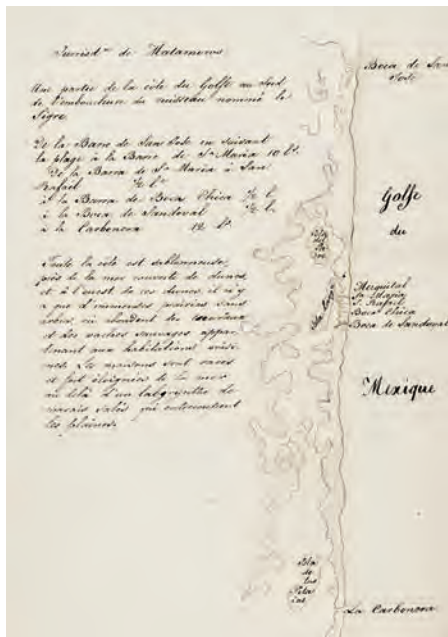 Jurisd.on de Matamoros
Une partie de la côte du Golfe au Sud
de l'embouchure du ruisseau nommé le
Tigre
De la Barre de San José en suivant
la plage à la Barre de S.ta Maria 10 l.s
De la Barra de S.ta Maria à San
Rafael ½ l.
à la Barra de Boca Chica ½ l.
à la Boca de Sandoval ½ l.
à la Carbonera 12 l.s
Toute la côte est sablonneuse,
près de la mer couverte de dunes,
et à l'ouest de ces dunes, il n'y
a que d'immenses prairies sans
arbres, où abondent les taureaux
et les vaches sauvages appar
tenant aux habitations voisi
nes. Les maisons sont rares
et fort éloignées de la mer
au delà d'un labyrinthe de
marais salés qui entrecoupent
les plaines.
Boca de San
José
Golfe
du
Mezquital
Sa. Maria
S. Rafael
Boca Chica
Boca de Sandoval
Mexique
Isla
de los
La Carbonera